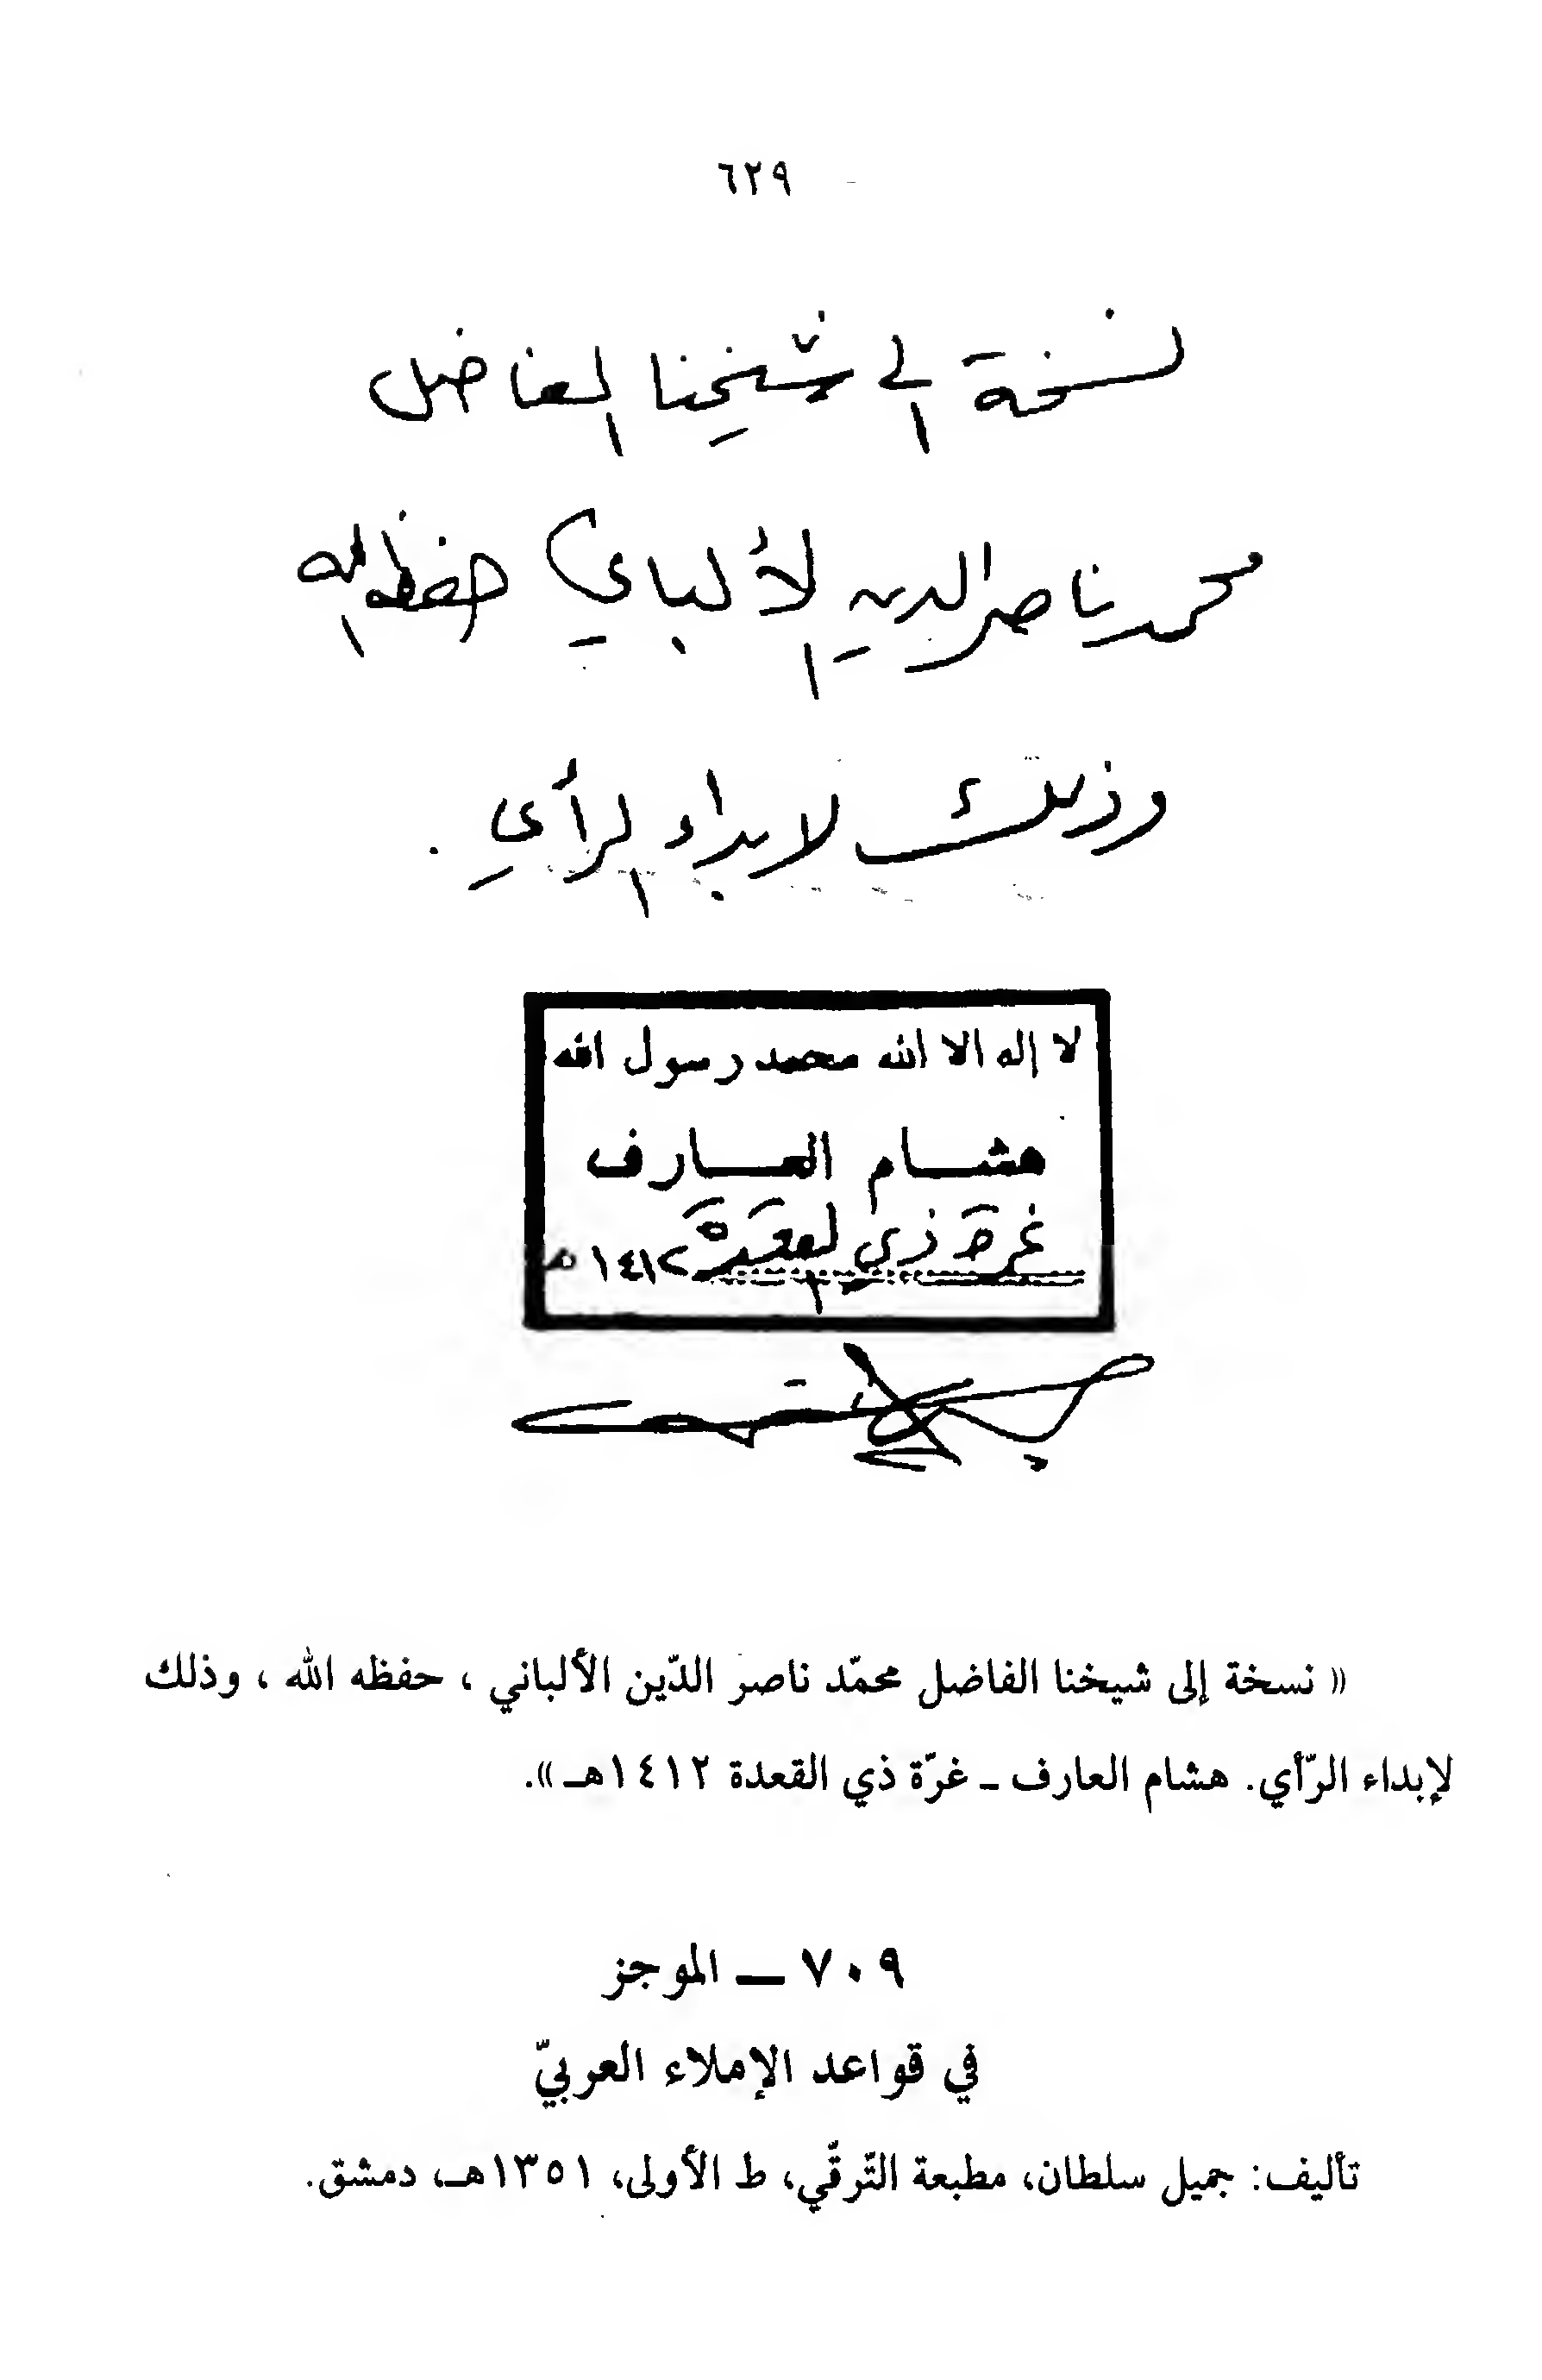 ٦٢٩
نسخة الى شيخنا الفاضل
محمد ناصر الدين الألباني حفظه الله
وذلك لابداء الرأي .
لا إله الا الله محمد رسول الله
هشام العارف
غرة ذي القعدة ١٤١٢ هـ
« نسخة إلى شيخنا الفاضل محمّد ناصر الدّين الألباني ، حفظه الله ، وذلك
لإبداء الرّأي. هشام العارف ـ غرّة ذي القعدة ١٤١٢هـ ».
٧٠٩ ـ الموجز
في قواعد الإملاء العربيّ
تأليف: جميل سلطان، مطبعة التّرقّي، ط الأولى، ١٣٥١هـ، دمشق.